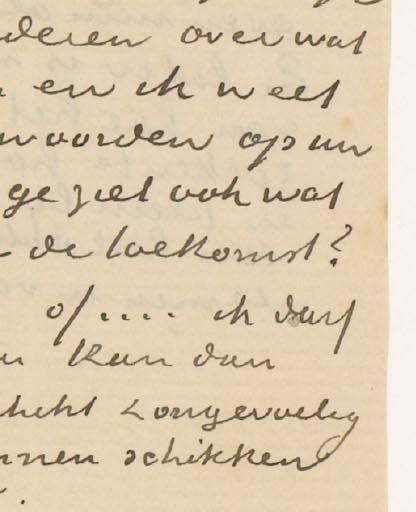 deren over wat
en ik weet
woorden op uw
ge ziet ook wat
de toekomst?
of .... ik durf
kan dan
zongevoelig
nnen schikken